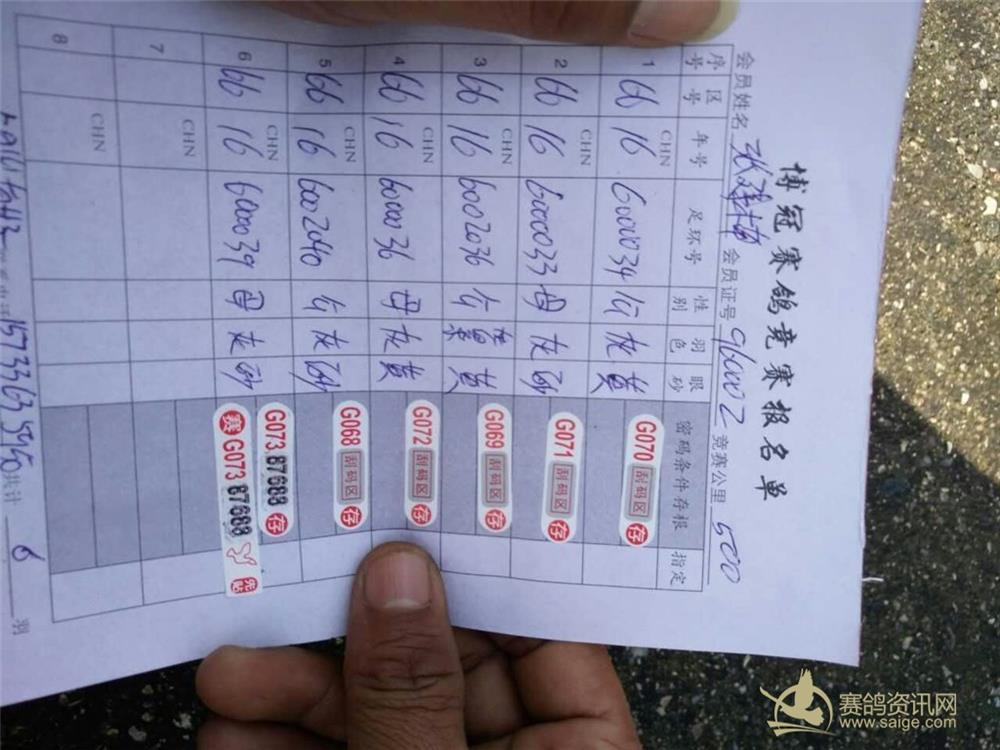 博冠赛鸽竞赛报名单
会员姓名 张建楠 会员证号 96002 竞赛公里 500
序号 区号 年号 足环号 性别 羽色 眼砂 密码条件存根 指定
1 66 CHN 16 6000034 灰 黄 G070 刮码区 存
2 66 CHN 16 6000033 母 灰 砂 G071 刮码区 存
3 66 CHN 16 6002036 黄 G069 刮码区 存
4 66 CHN 16 6000036 母 灰 黄 G072 刮码区 存
5 66 CHN 16 6002040 灰 砂 G068 刮码区 存
6 66 CHN 16 6000039 母 灰 砂 G073 87688 存
赛 G073 87688 先贴
7 CHN
8 CHN
15733635950 共计 6 羽
赛鸽资讯网
www.saige.com